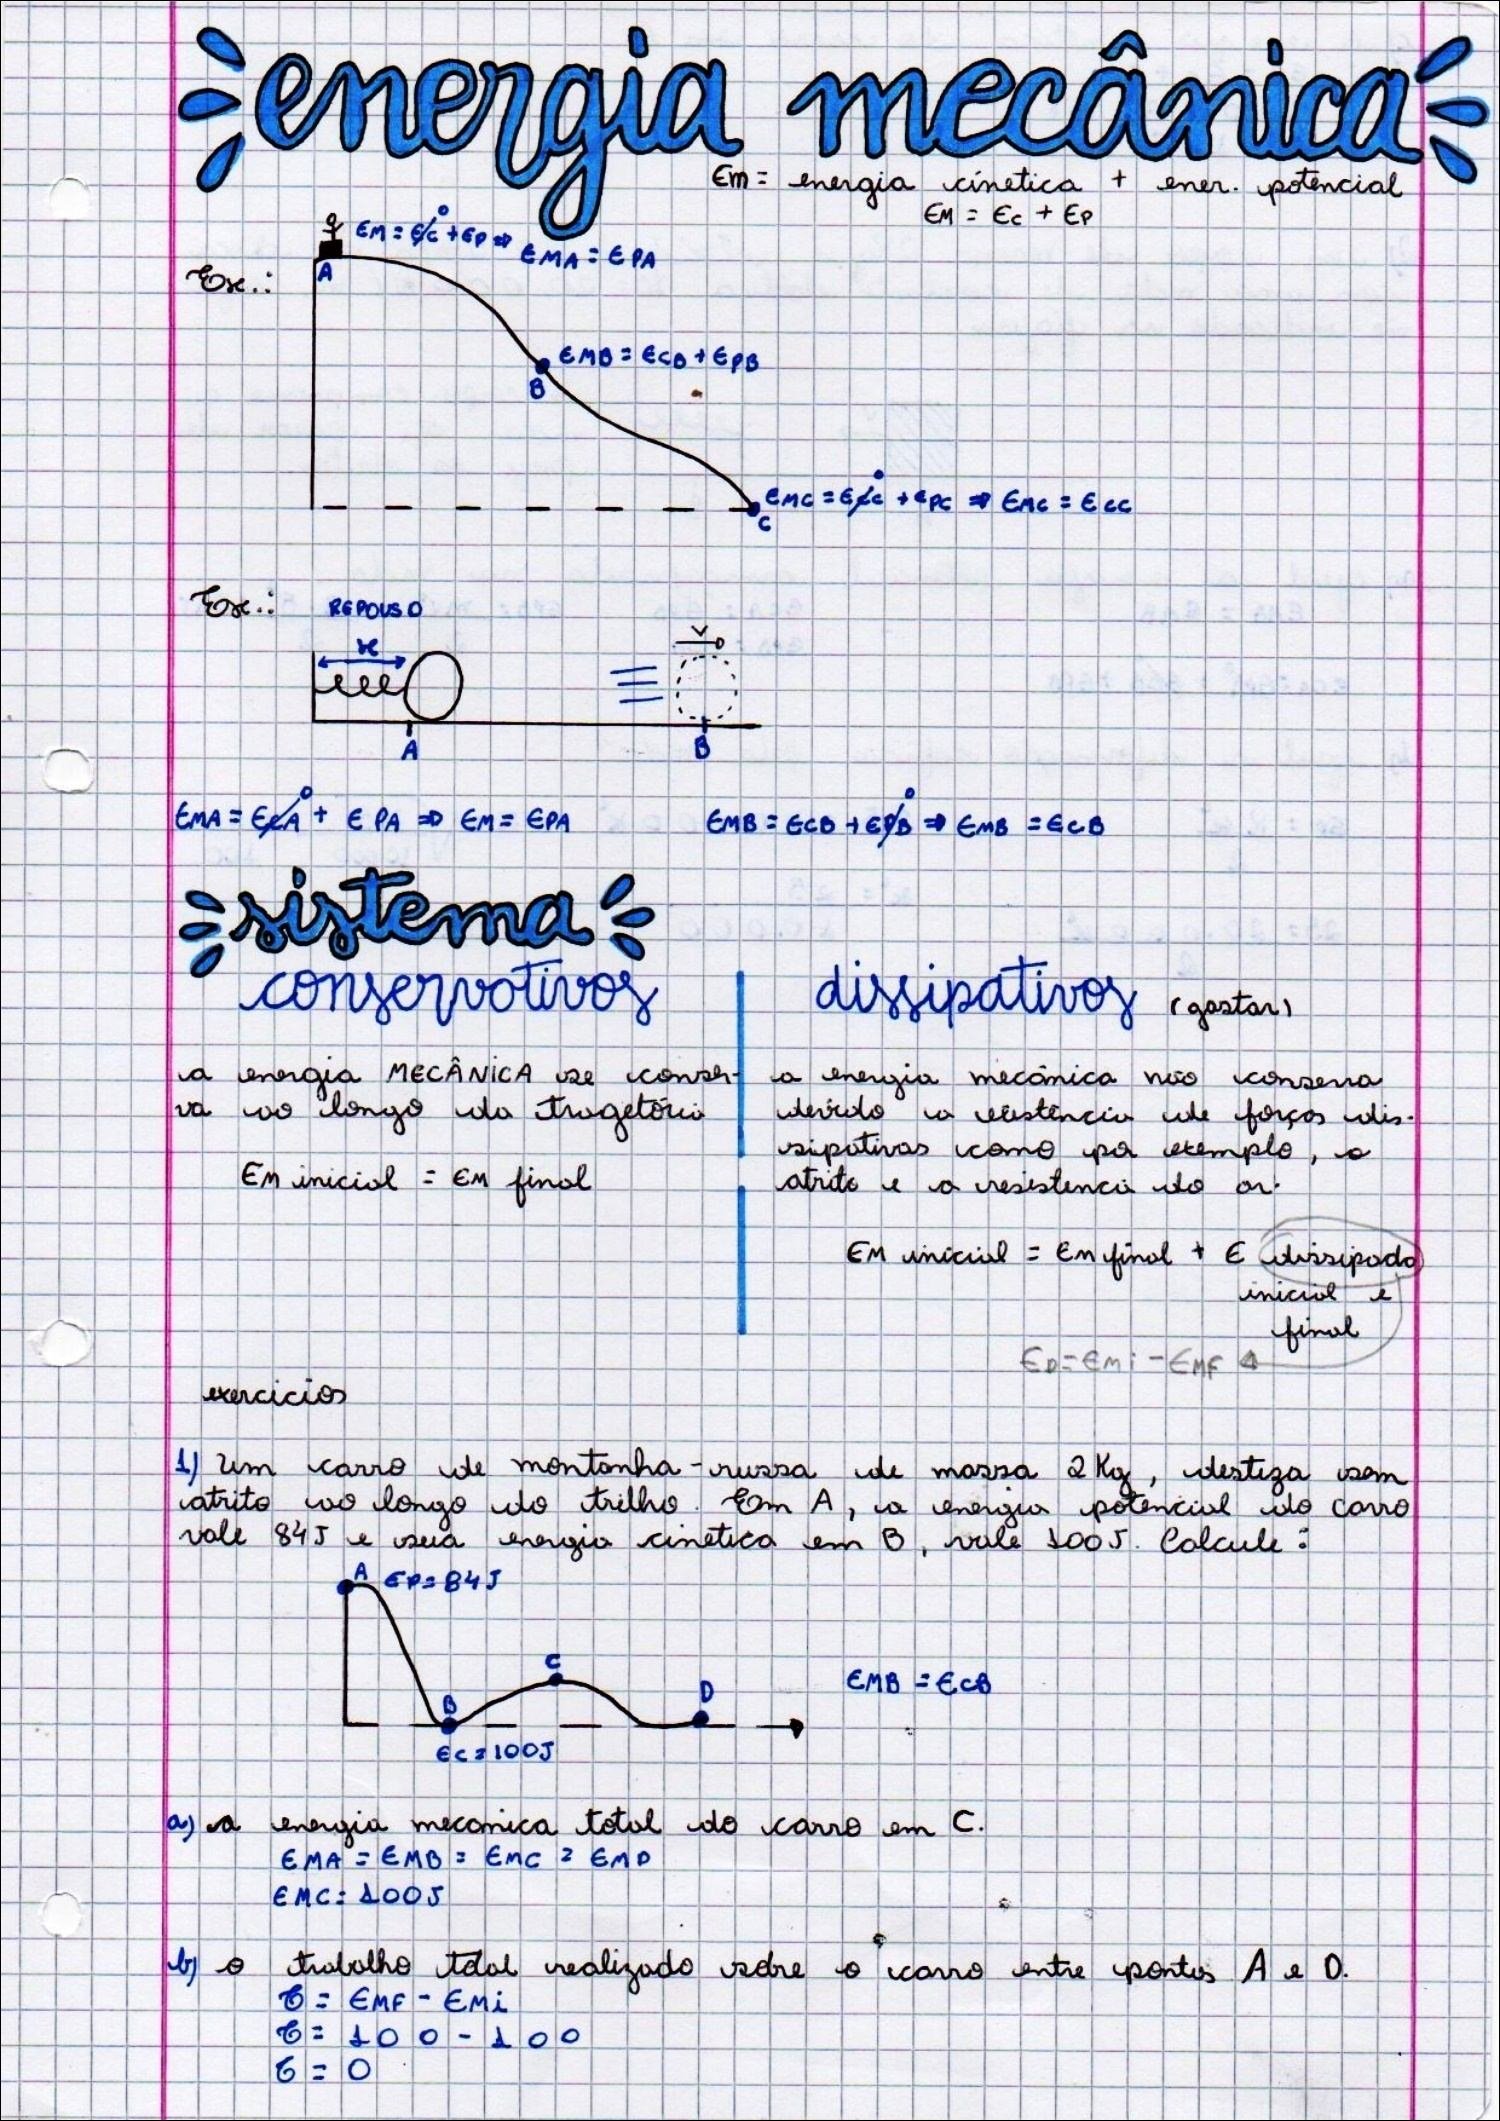 energia mecânica
Em = energia cinetica + ener. potencial
EM = EC + EP
EM = EC⁰ + EP ⇒ EMA = EPA
Ex.:
A
EMB = ECB + EPB
B
EMC = ECC⁰ + EPC ⇒ EMC = ECC
C
Ex.: REPOUSO
x
V
A
B
EMA = ECA⁰ + EPA ⇒ EM = EPA
EMB = ECB + EPB⁰ ⇒ EMB = ECB
sistema
conservativos
a energia MECÂNICA se conser-
va ao longo da tragetória
EM inicial = EM final
dissipativos (gastar)
a energia mecânica não conserva
devido a existência de forças dis-
sipativas como por exemplo, o
atrito e a resistencia do ar.
EM inicial = Em final + E dissipada
inicial e
final
ED = EMi - EMF
exercicios
1) Um carro de montanha-russa de massa 2 Kg, desliza sem
atrito ao longo do trilho. Em A, a energia potencial do carro
vale 84J e sua energia cinética em B, vale 100J. Calcule:
A EP = 84J
C
B
D
EMB = ECB
EC = 100J
a) a energia mecanica total do carro em C.
EMA = EMB = EMC = EMD
EMC = 100J
b) o trabalho total realizado sobre o carro entre pontos A e D.
τ = EMF - EMi
τ = 100 - 100
τ = 0